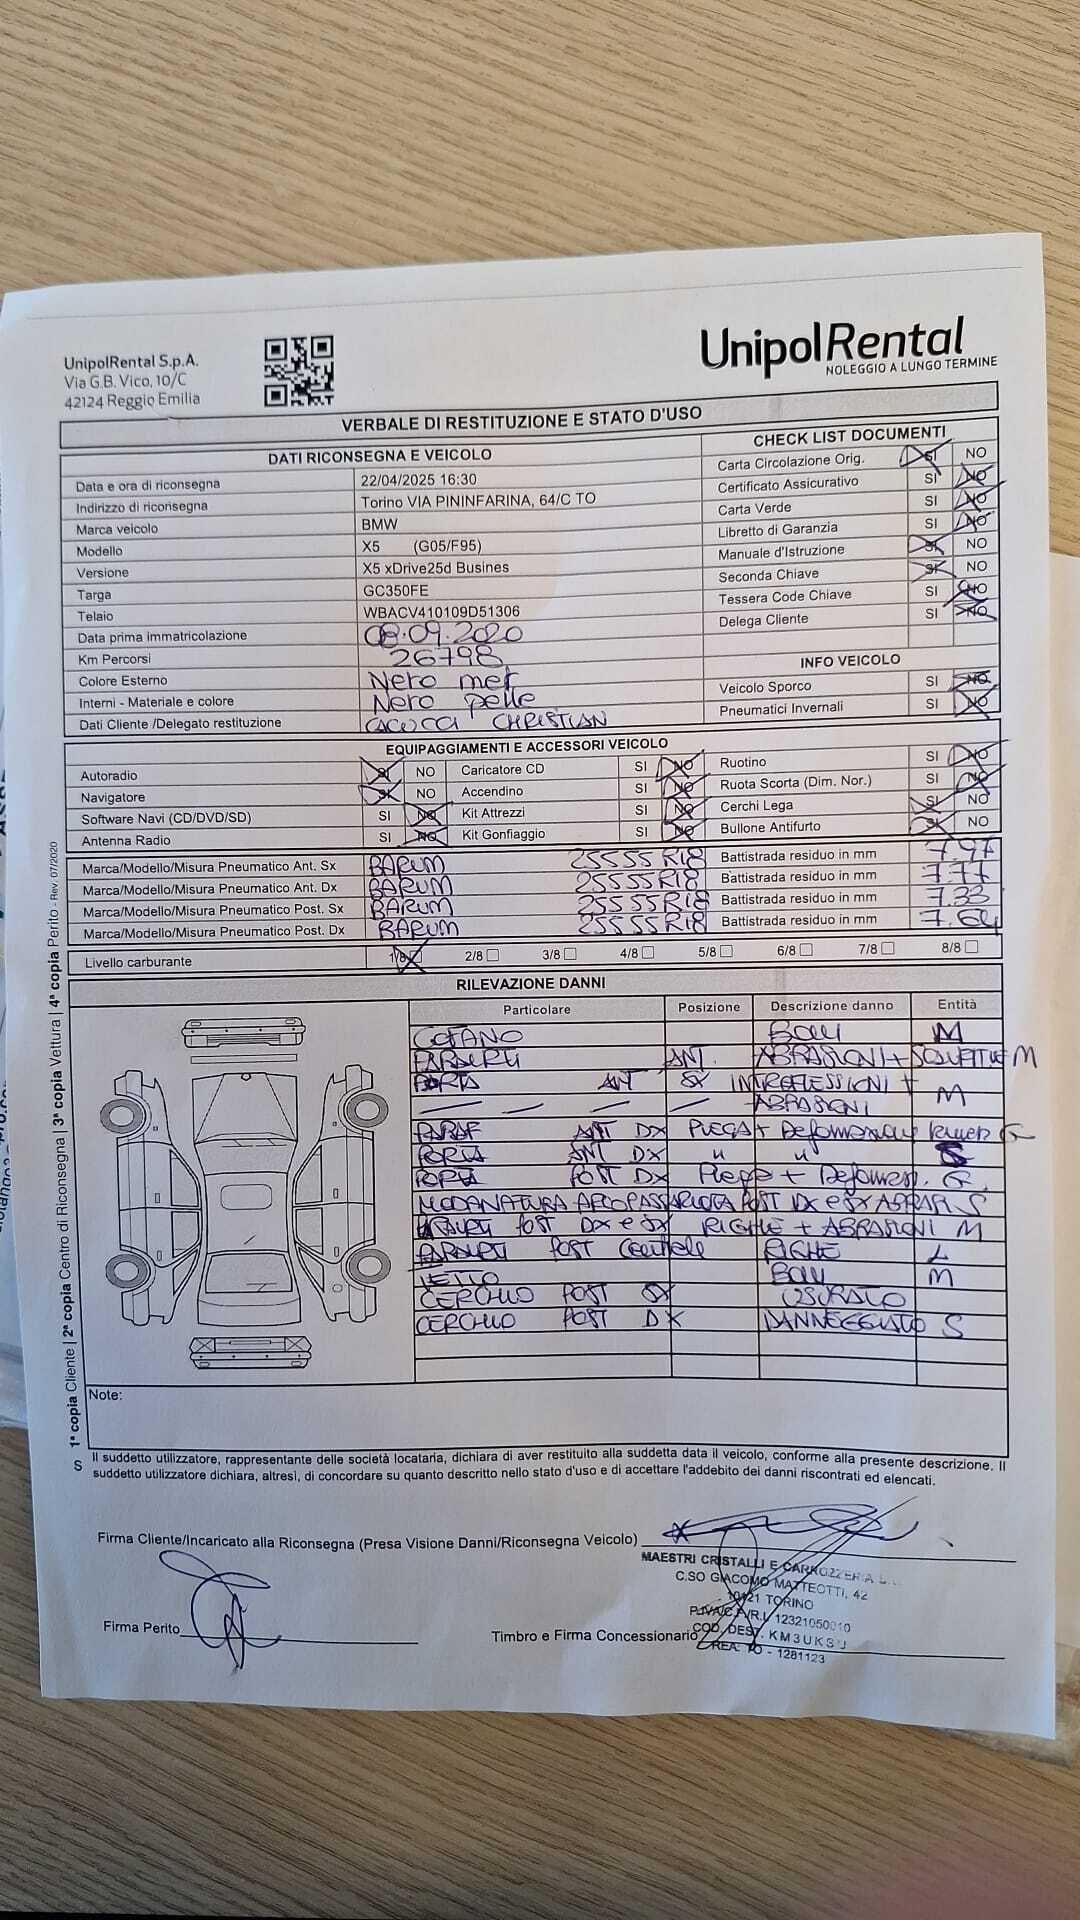 UnipolRental S.p.A.
Via G.B. Vico, 10/C
42124 Reggio Emilia
UnipolRental
NOLEGGIO A LUNGO TERMINE
VERBALE DI RESTITUZIONE E STATO D'USO
DATI RICONSEGNA E VEICOLO
Data e ora di riconsegna 22/04/2025 16:30
Indirizzo di riconsegna Torino VIA PININFARINA, 64/C TO
Marca veicolo BMW
Modello X5 (G05/F95)
Versione X5 xDrive25d Busines
Targa GC350FE
Telaio WBACV410109D51306
Data prima immatricolazione 08.09.2020
Km Percorsi 26798
Colore Esterno Nero met
Interni - Materiale e colore Nero pelle
Dati Cliente /Delegato restituzione CHRISTIAN
CHECK LIST DOCUMENTI
Carta Circolazione Orig. SI NO
Certificato Assicurativo SI NO
Carta Verde SI NO
Libretto di Garanzia SI NO
Manuale d'Istruzione SI NO
Seconda Chiave SI NO
Tessera Code Chiave SI NO
Delega Cliente SI NO
INFO VEICOLO
Veicolo Sporco SI NO
Pneumatici Invernali SI NO
EQUIPAGGIAMENTI E ACCESSORI VEICOLO
Autoradio SI NO Caricatore CD SI NO Ruotino SI NO
Navigatore SI NO Accendino SI NO Ruota Scorta (Dim. Nor.) SI NO
Software Navi (CD/DVD/SD) SI NO Kit Attrezzi SI NO Cerchi Lega SI NO
Antenna Radio SI NO Kit Gonfiaggio SI NO Bullone Antifurto SI NO
Marca/Modello/Misura Pneumatico Ant. Sx BARUM 25555R18 Battistrada residuo in mm 7.97
Marca/Modello/Misura Pneumatico Ant. Dx BARUM 25555R18 Battistrada residuo in mm 7.77
Marca/Modello/Misura Pneumatico Post. Sx BARUM 25555R18 Battistrada residuo in mm 7.33
Marca/Modello/Misura Pneumatico Post. Dx BARUM 25555R18 Battistrada residuo in mm 7.64
Livello carburante 1/8 2/8 3/8 4/8 5/8 6/8 7/8 8/8
RILEVAZIONE DANNI
Particolare Posizione Descrizione danno Entità
COFANO BOLLI M
PARAURTI ANT. ABRASIONI + M
PORTA ANT SX INTROFLESSIONI +
ABRASIONI M
PARAF ANT DX PIEGA + G
PORTA ANT DX " "
PORTA POST DX Piega + Deformaz. G
MODANATURA ARCOPASSARUOTA POST DX e SX ABRASI S
PARAURTI POST DX e SX RIGHE + ABRASIONI M
PARAURTI POST Centrale RIGHE L
TETTO BOLLI M
CERCHIO POST SX USURATO
CERCHIO POST DX DANNEGGIATO S
Note:
Il suddetto utilizzatore, rappresentante delle società locataria, dichiara di aver restituito alla suddetta data il veicolo, conforme alla presente descrizione. Il
S suddetto utilizzatore dichiara, altresì, di concordare su quanto descritto nello stato d'uso e di accettare l'addebito dei danni riscontrati ed elencati.
Firma Cliente/Incaricato alla Riconsegna (Presa Visione Danni/Riconsegna Veicolo)
MAESTRI CRISTALLI E CARROZZERIA
C.SO GIACOMO MATTEOTTI, 42
10121 TORINO
P.IVA/C.F./R.I. 12321050010
COD. DEST. KM3UKSJ
REA: TO - 1281123
Firma Perito
Timbro e Firma Concessionario
1ª copia Cliente | 2ª copia Centro di Riconsegna | 3ª copia Vettura | 4ª copia Perito - Rev. 07/2020